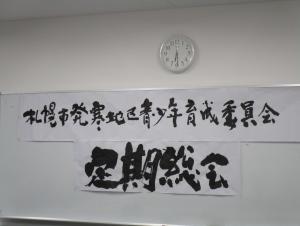 札幌市発寒地区青少年育成委員会
定期総会